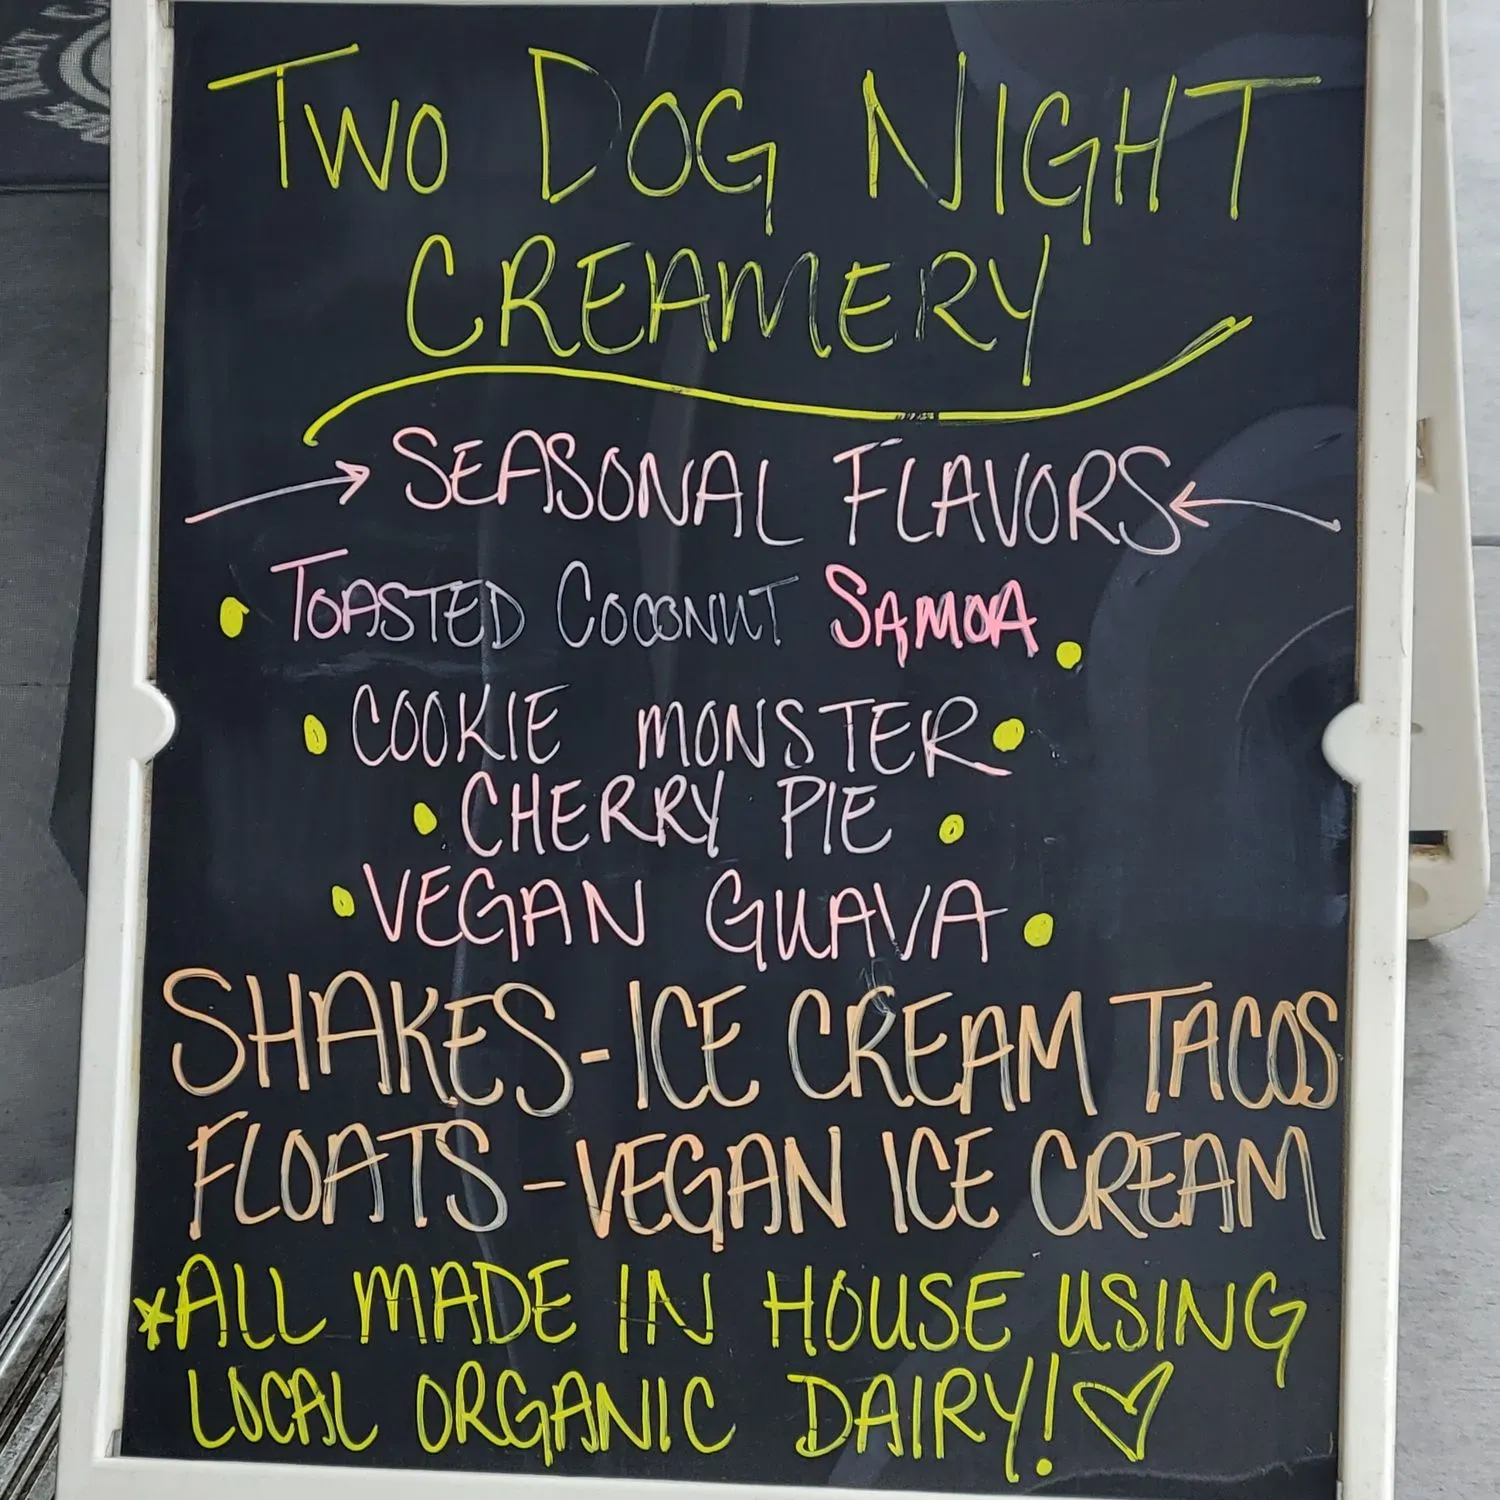 TWO DOG NIGHT
CREAMERY
SEASONAL FLAVORS
TOASTED COCONUT SAMOA
COOKIE MONSTER
CHERRY PIE
VEGAN GUAVA
SHAKES-ICE CREAM TACOS
FLOATS-VEGAN ICE CREAM
*ALL MADE IN HOUSE USING
LOCAL ORGANIC DAIRY!